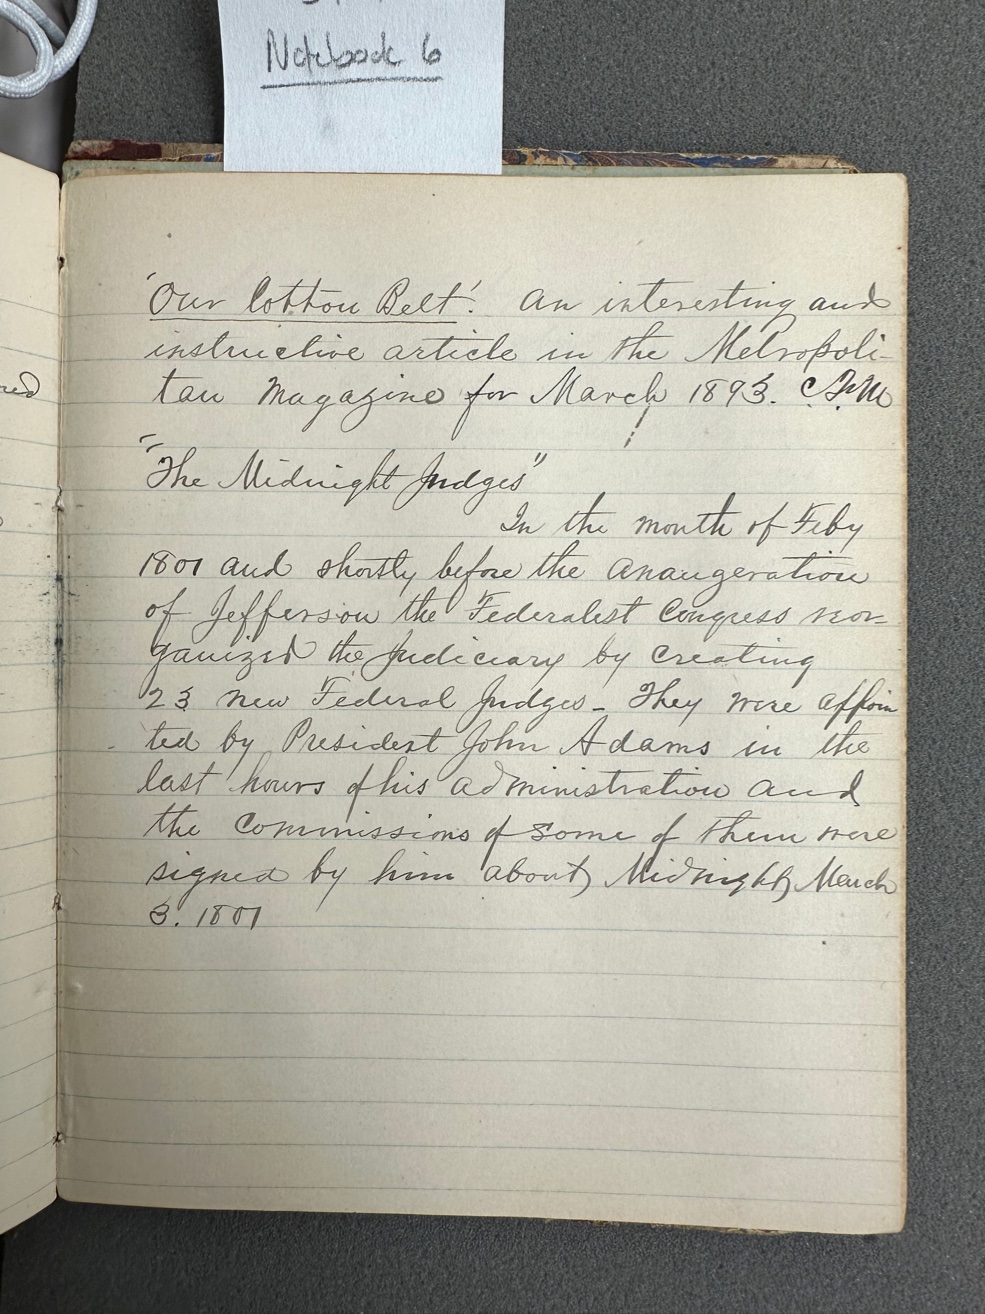 Notebook 6
'Our Cotton Belt'. An interesting and
instructive article in the Metropoli-
tan Magazine for March 1893.
"The Midnight Judges"
In the month of Feby
1801 and shortly before the anaugeration
of Jefferson the Federalest Congress reor-
ganized the Judiciary by creating
23 new Federal Judges - They were appoin
ted by President John Adams in the
last hours of his administration and
the Commissions of some of them were
signed by him about Midnight March
3. 1801